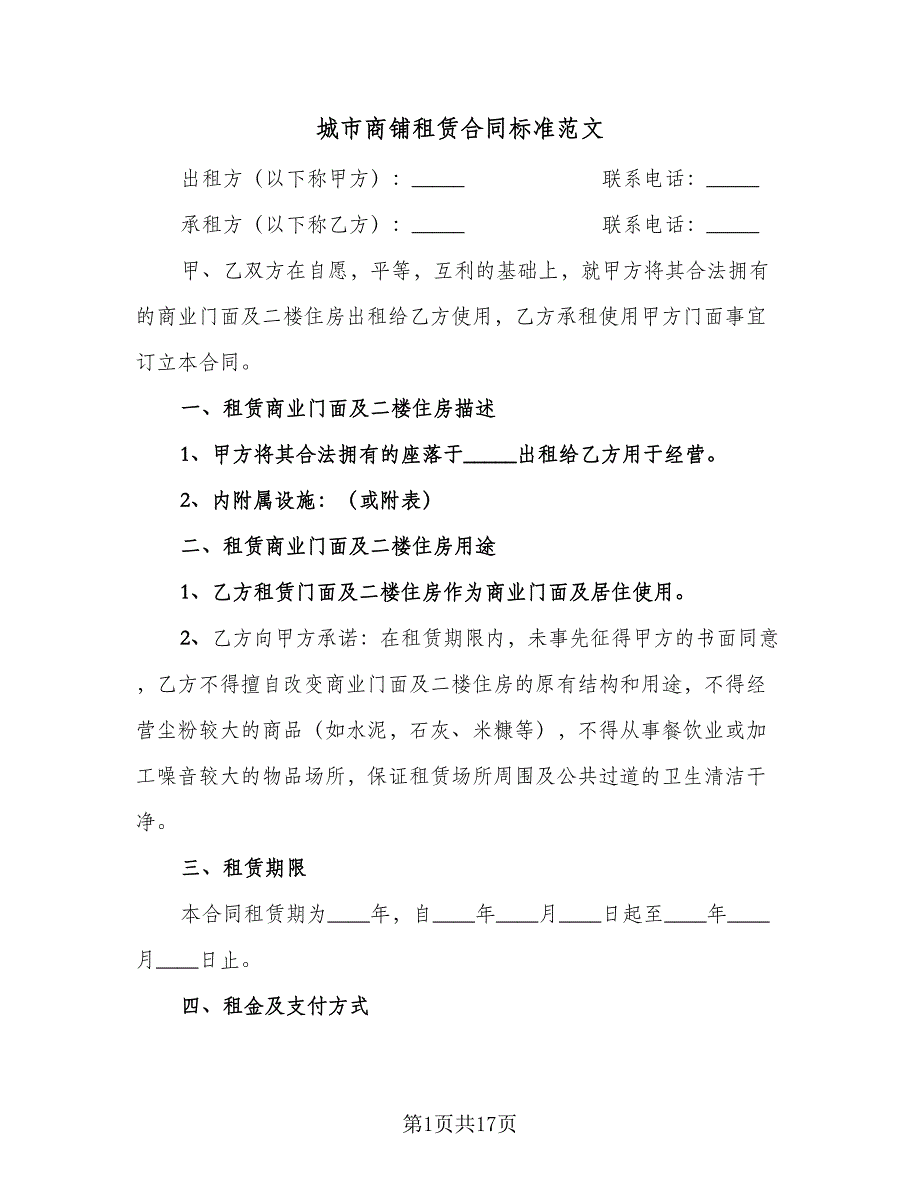 城市商铺租赁合同标准范文
出租方（以下称甲方）：_____ 联系电话：_____
承租方（以下称乙方）：_____ 联系电话：_____
甲、乙双方在自愿，平等，互利的基础上，就甲方将其合法拥有
的商业门面及二楼住房出租给乙方使用，乙方承租使用甲方门面事宜
订立本合同。
一、租赁商业门面及二楼住房描述
1、甲方将其合法拥有的座落于_____出租给乙方用于经营。
2、内附属设施：（或附表）
二、租赁商业门面及二楼住房用途
1、乙方租赁门面及二楼住房作为商业门面及居住使用。
2、乙方向甲方承诺：在租赁期限内，未事先征得甲方的书面同意
，乙方不得擅自改变商业门面及二楼住房的原有结构和用途，不得经
营尘粉较大的商品（如水泥，石灰、米糠等），不得从事餐饮业或加
工噪音较大的物品场所，保证租赁场所周围及公共过道的卫生清洁干
净。
三、租赁期限
本合同租赁期为____年，自____年____月____日起至____年____
月____日止。
四、租金及支付方式
第1页共17页